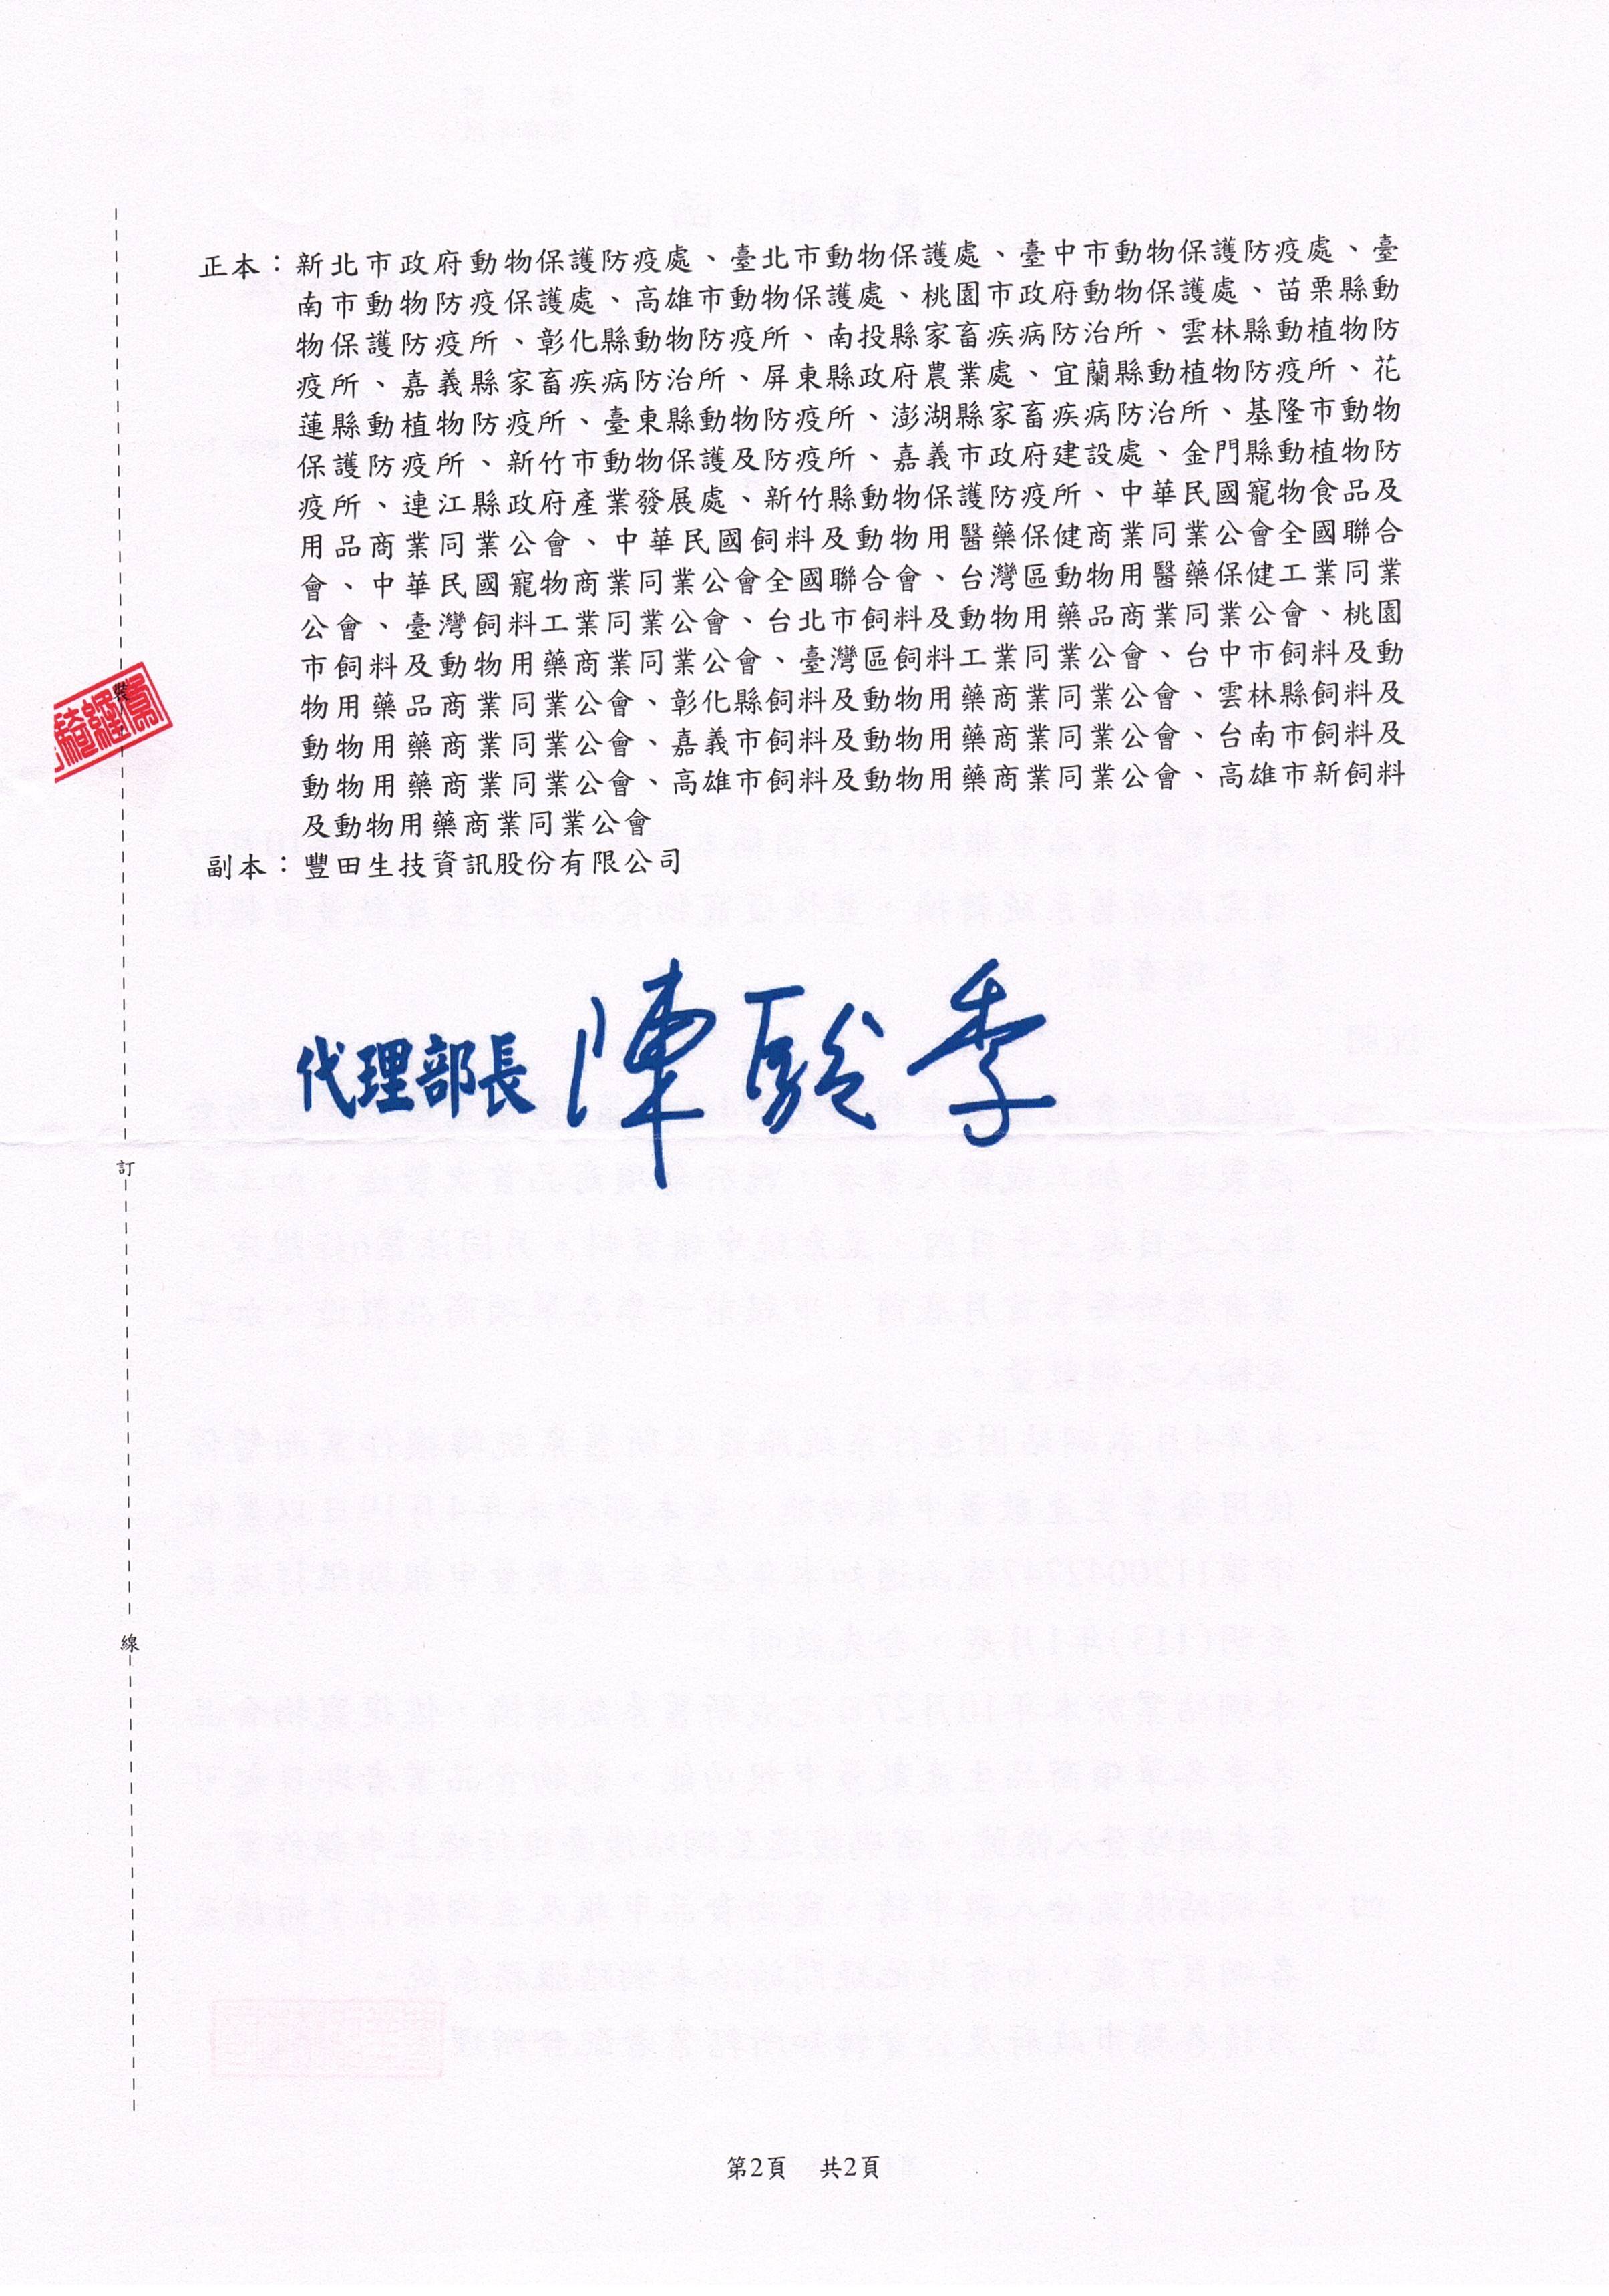 正本：新北市政府動物保護防疫處、臺北市動物保護處、臺中市動物保護防疫處、臺
南市動物防疫保護處、高雄市動物保護處、桃園市政府動物保護處、苗栗縣動
物保護防疫所、彰化縣動物防疫所、南投縣家畜疾病防治所、雲林縣動植物防
疫所、嘉義縣家畜疾病防治所、屏東縣政府農業處、宜蘭縣動植物防疫所、花
蓮縣動植物防疫所、臺東縣動物防疫所、澎湖縣家畜疾病防治所、基隆市動物
保護防疫所、新竹市動物保護及防疫所、嘉義市政府建設處、金門縣動植物防
疫所、連江縣政府產業發展處、新竹縣動物保護防疫所、中華民國寵物食品及
用品商業同業公會、中華民國飼料及動物用醫藥保健商業同業公會全國聯合
會、中華民國寵物商業同業公會全國聯合會、台灣區動物用醫藥保健工業同業
公會、臺灣飼料工業同業公會、台北市飼料及動物用藥品商業同業公會、桃園
市飼料及動物用藥商業同業公會、臺灣區飼料工業同業公會、台中市飼料及動
物用藥品商業同業公會、彰化縣飼料及動物用藥商業同業公會、雲林縣飼料及
動物用藥商業同業公會、嘉義市飼料及動物用藥商業同業公會、台南市飼料及
動物用藥商業同業公會、高雄市飼料及動物用藥商業同業公會、高雄市新飼料
及動物用藥商業同業公會
副本：豐田生技資訊股份有限公司
裝
代理部長 陳駿季
訂
線
第2頁 共2頁